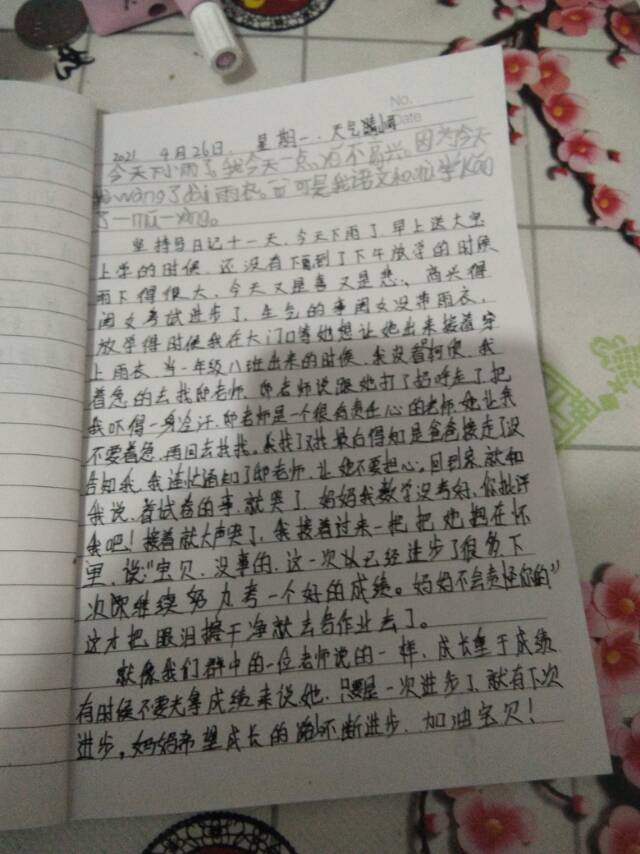 No.
Date
2021 4月26日. 星期一. 天气
今天下小雨了。我今天一点 不高兴。因为今天
wàng了 雨衣。可是我语文和数学
了一mú一yàng。
坚持写日记十一天. 今天下雨了. 早上送大宝
上学的时候. 还没有下雨到了下午放学的时候
雨下得很大. 今天又是喜又是悲. 高兴得
闺女考试进步了. 生气的事闺女没带雨衣.
放学得时候我在大门口等她想让她出来接着穿
上雨衣. 当一年级八班出来的时候. 我没看 我
着急的去找邱老师. 邱老师说跟她打了招呼走了把
我吓得一身冷汗. 邱老师是一个很有责任心的老师. 她让我
不要着急. 再回去找找. 我找了又找最后得知是爸爸接走了没
告知我. 我连忙通知了邱老师. 让她不要担心. 回到家就和
我说. 着试卷的事. 就哭了. 妈妈我数学没考好. 你批评
我吧! 接着就大声哭了. 我接着过来一把把她抱在怀
里. 说:"宝贝. 没事的. 这一次以已经进步了很多下
次 继续努力考一个好的成绩。妈妈不会责怪你的"
这才把眼泪擦干净就去写作业去了。
就像我们群中的一位老师说的一样. 成长重于成绩
有时候不要光拿成绩来说她. 只要是一次进步了. 就有下次
进步。妈妈希望成长的 不断进步. 加油宝贝!